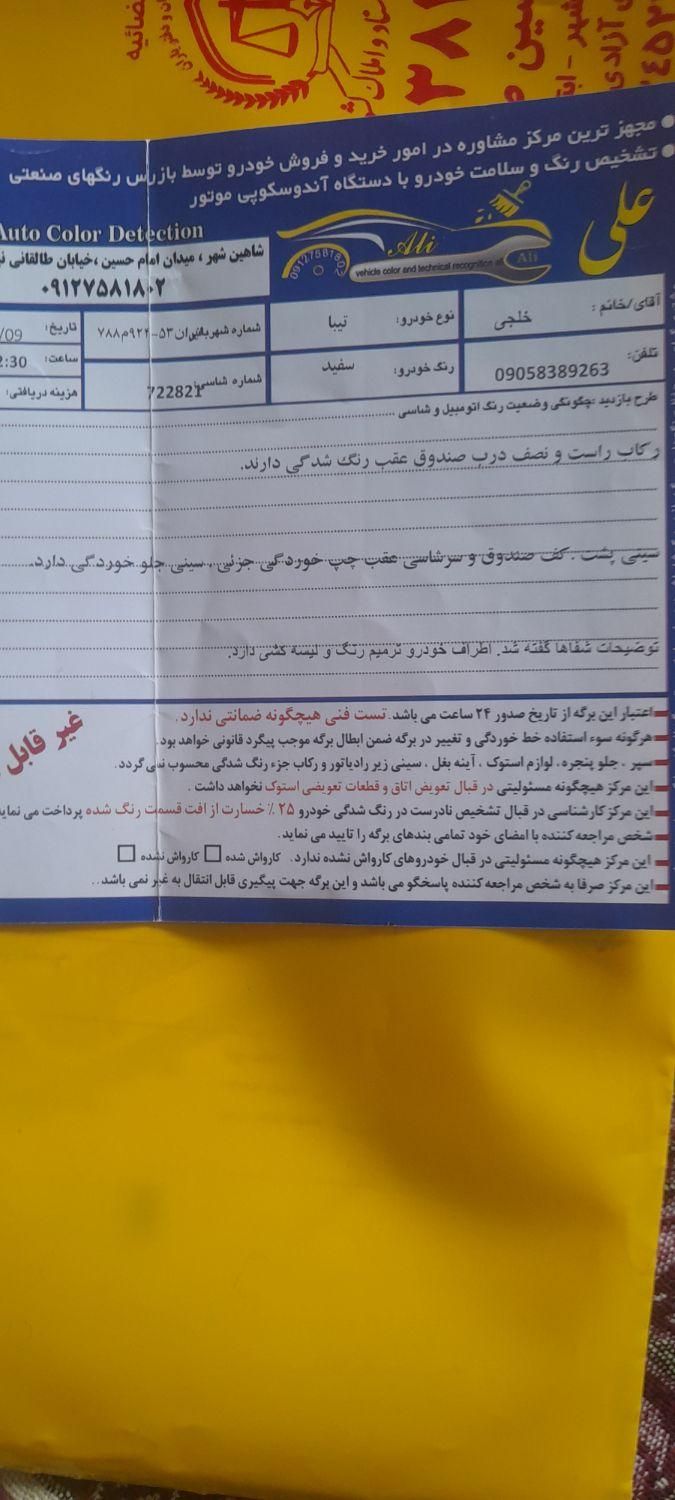 ضائیه
سناد و املاک
● مجهز ترین مرکز مشاوره در امور خرید و فروش خودرو توسط بازرس رنگهای صنعتی
● تشخیص رنگ و سلامت خودرو با دستگاه آندوسکوپی موتور
علی
Auto Color Detection
Ali
09127581802
vehicle color and technical recognition ali
Ali
شاهین شهر ، میدان امام حسین ،خیابان طالقانی
۰۹۱۲۷۵۸۱۸۰۲
آقای/خانم : خلجی
نوع خودرو: تیبا
شماره شهربانی: ایران ۵۳-۹۲۴م۷۸۸
تاریخ: /09
تلفن: 09058389263
رنگ خودرو: سفید
شماره شاسی: 722821
ساعت: 2:30
هزینه دریافتی:
طرح بازدید :چگونگی وضعیت رنگ اتومبیل و شاسی
رکاب راست و نصف درب صندوق عقب رنگ شدگی دارند.
سینی پشت . کف صندوق و سرشاسی عقب چپ خوردگی جزئی . سینی جلو خوردگی دارد.
توضیحات شفاها گفته شد. اطراف خودرو ترمیم رنگ و لیسه کشی دارد.
اعتبار این برگه از تاریخ صدور ۲۴ ساعت می باشد. تست فنی هیچگونه ضمانتی ندارد .
هرگونه سوء استفاده خط خوردگی و تغییر در برگه ضمن ابطال برگه موجب پیگرد قانونی خواهد بود.
سپر ، جلو پنجره، لوازم استوک ، آینه بغل ، سینی زیر رادیاتور و رکاب جزء رنگ شدگی محسوب نمی گردد.
این مرکز هیچگونه مسئولیتی در قبال تعویض اتاق و قطعات تعویضی استوک نخواهد داشت .
این مرکز کارشناسی در قبال تشخیص نادرست در رنگ شدگی خودرو ۲۵ ٪ خسارت از افت قسمت رنگ شده پرداخت می نماید
شخص مراجعه کننده با امضای خود تمامی بندهای برگه را تایید می نماید.
این مرکز هیچگونه مسئولیتی در قبال خودروهای کارواش نشده ندارد. کارواش شده □ کارواش نشده □
این مرکز صرفا به شخص مراجعه کننده پاسخگو می باشد و این برگه جهت پیگیری قابل انتقال به غیر نمی باشد..
غیر قابل